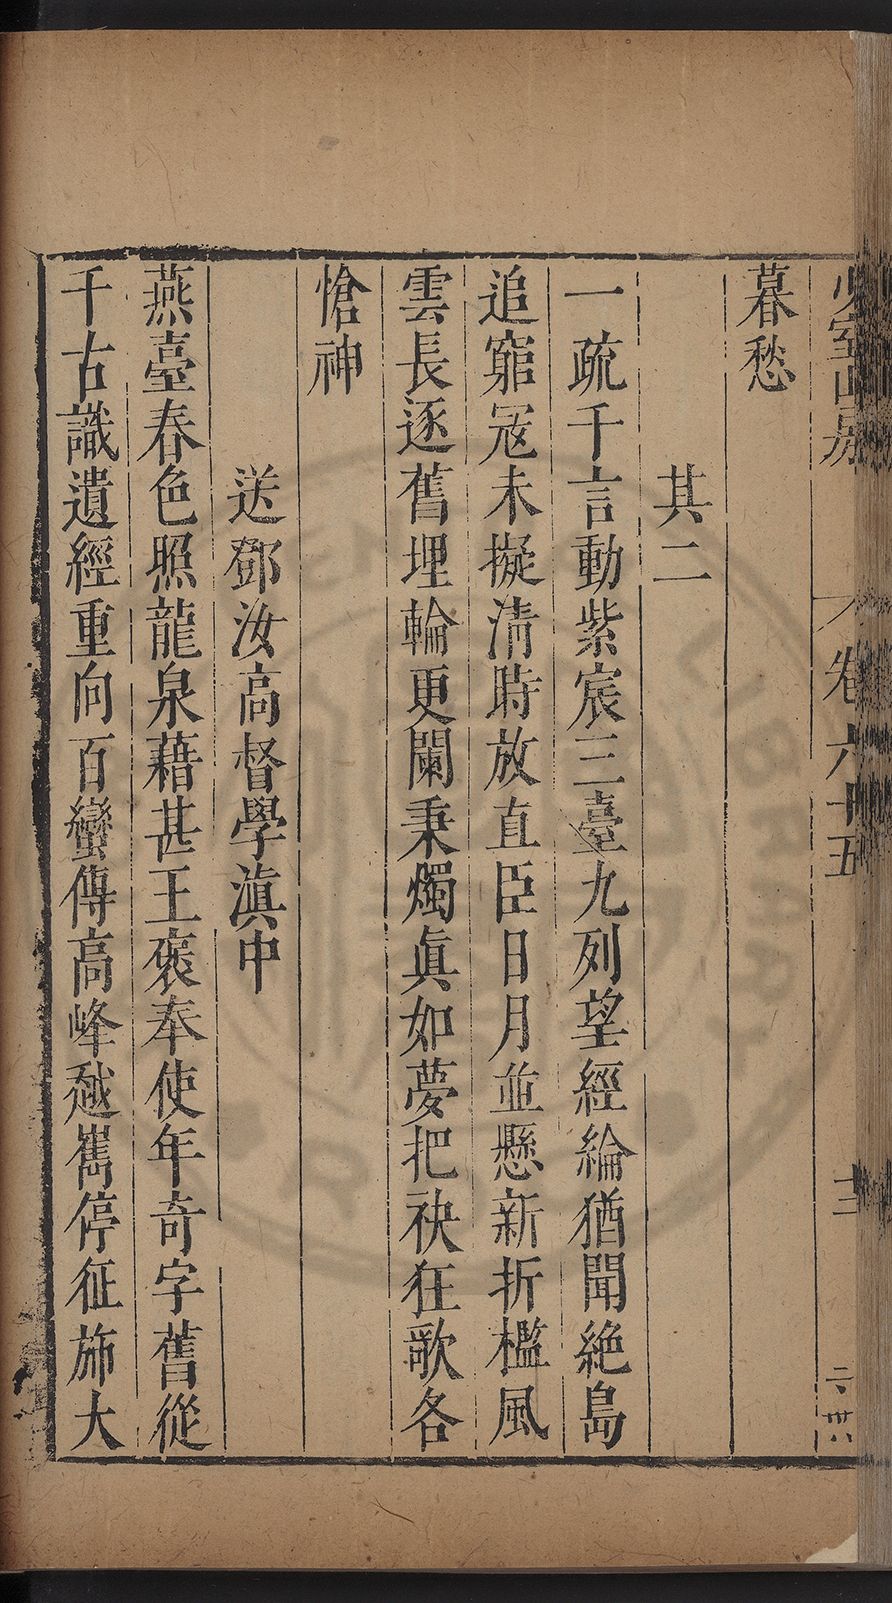 少室山房 卷六十五 十二
暮愁
其二
一疏千言動紫宸三臺九列望經綸猶聞絶島
追窮冦未擬清時放直臣日月並懸新折檻風
雲長逐舊埋輪更闌秉燭眞如夢把袂狂歌各
愴神
送鄧汝高督學滇中
燕臺春色照龍泉藉甚王褒奉使年奇字舊從
千古識遺經重向百蠻傳高峰越嶲停征斾大